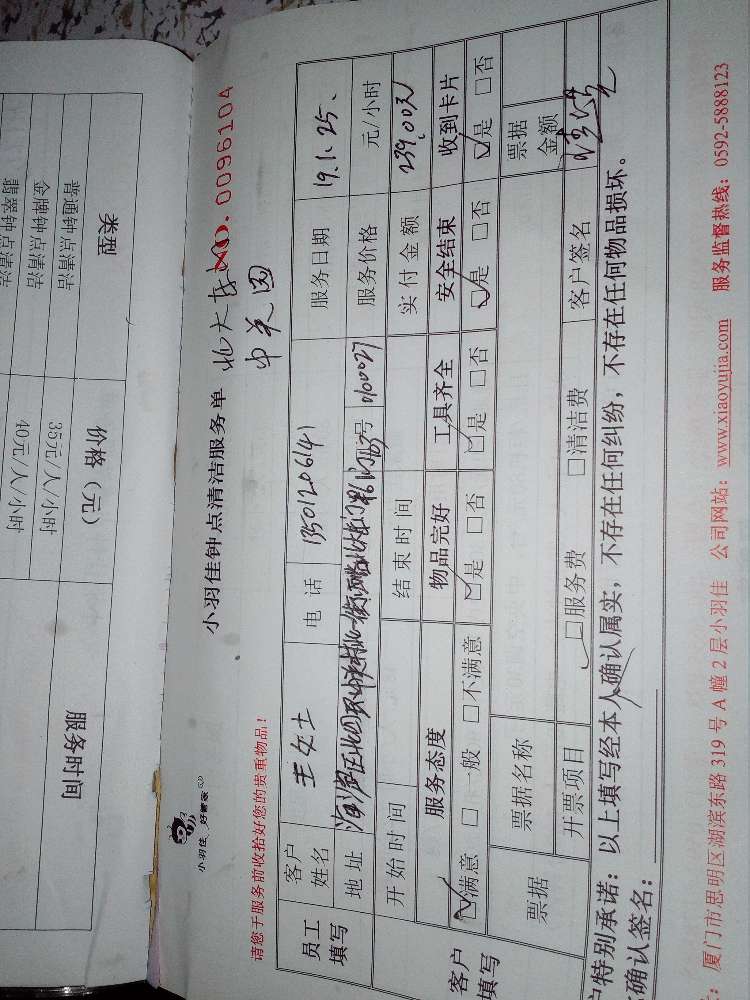 小羽佳钟点清洁服务单
NO.0096104
中关园
小羽佳 好管家
请您于服务前收拾好您的贵重物品！
员工填写
客户姓名 王女士 电话 13501206141 服务日期 19.1.25.
地址 服务价格 元/小时
开始时间 结束时间 实付金额 239.00元
客户填写
服务态度 物品完好 工具齐全 安全结束 收到卡片
☑满意 □一般 □不满意 ☑是 □否 ☑是 □否 ☑是 □否 ☑是 □否
票据 票据名称 票据金额
开票项目 ☑服务费 □清洁费 客户签名
户特别承诺：以上填写经本人确认属实，不存在任何纠纷，不存在任何物品损坏。
确认签名：
：厦门市思明区湖滨东路 319 号 A 幢 2 层小羽佳 公司网站：www.xiaoyujia.com 服务监督热线：0592-5888123
类型 价格（元） 服务时间
普通钟点清洁 35元/人/小时
金牌钟点清洁 40元/人/小时
翡翠钟点清洁